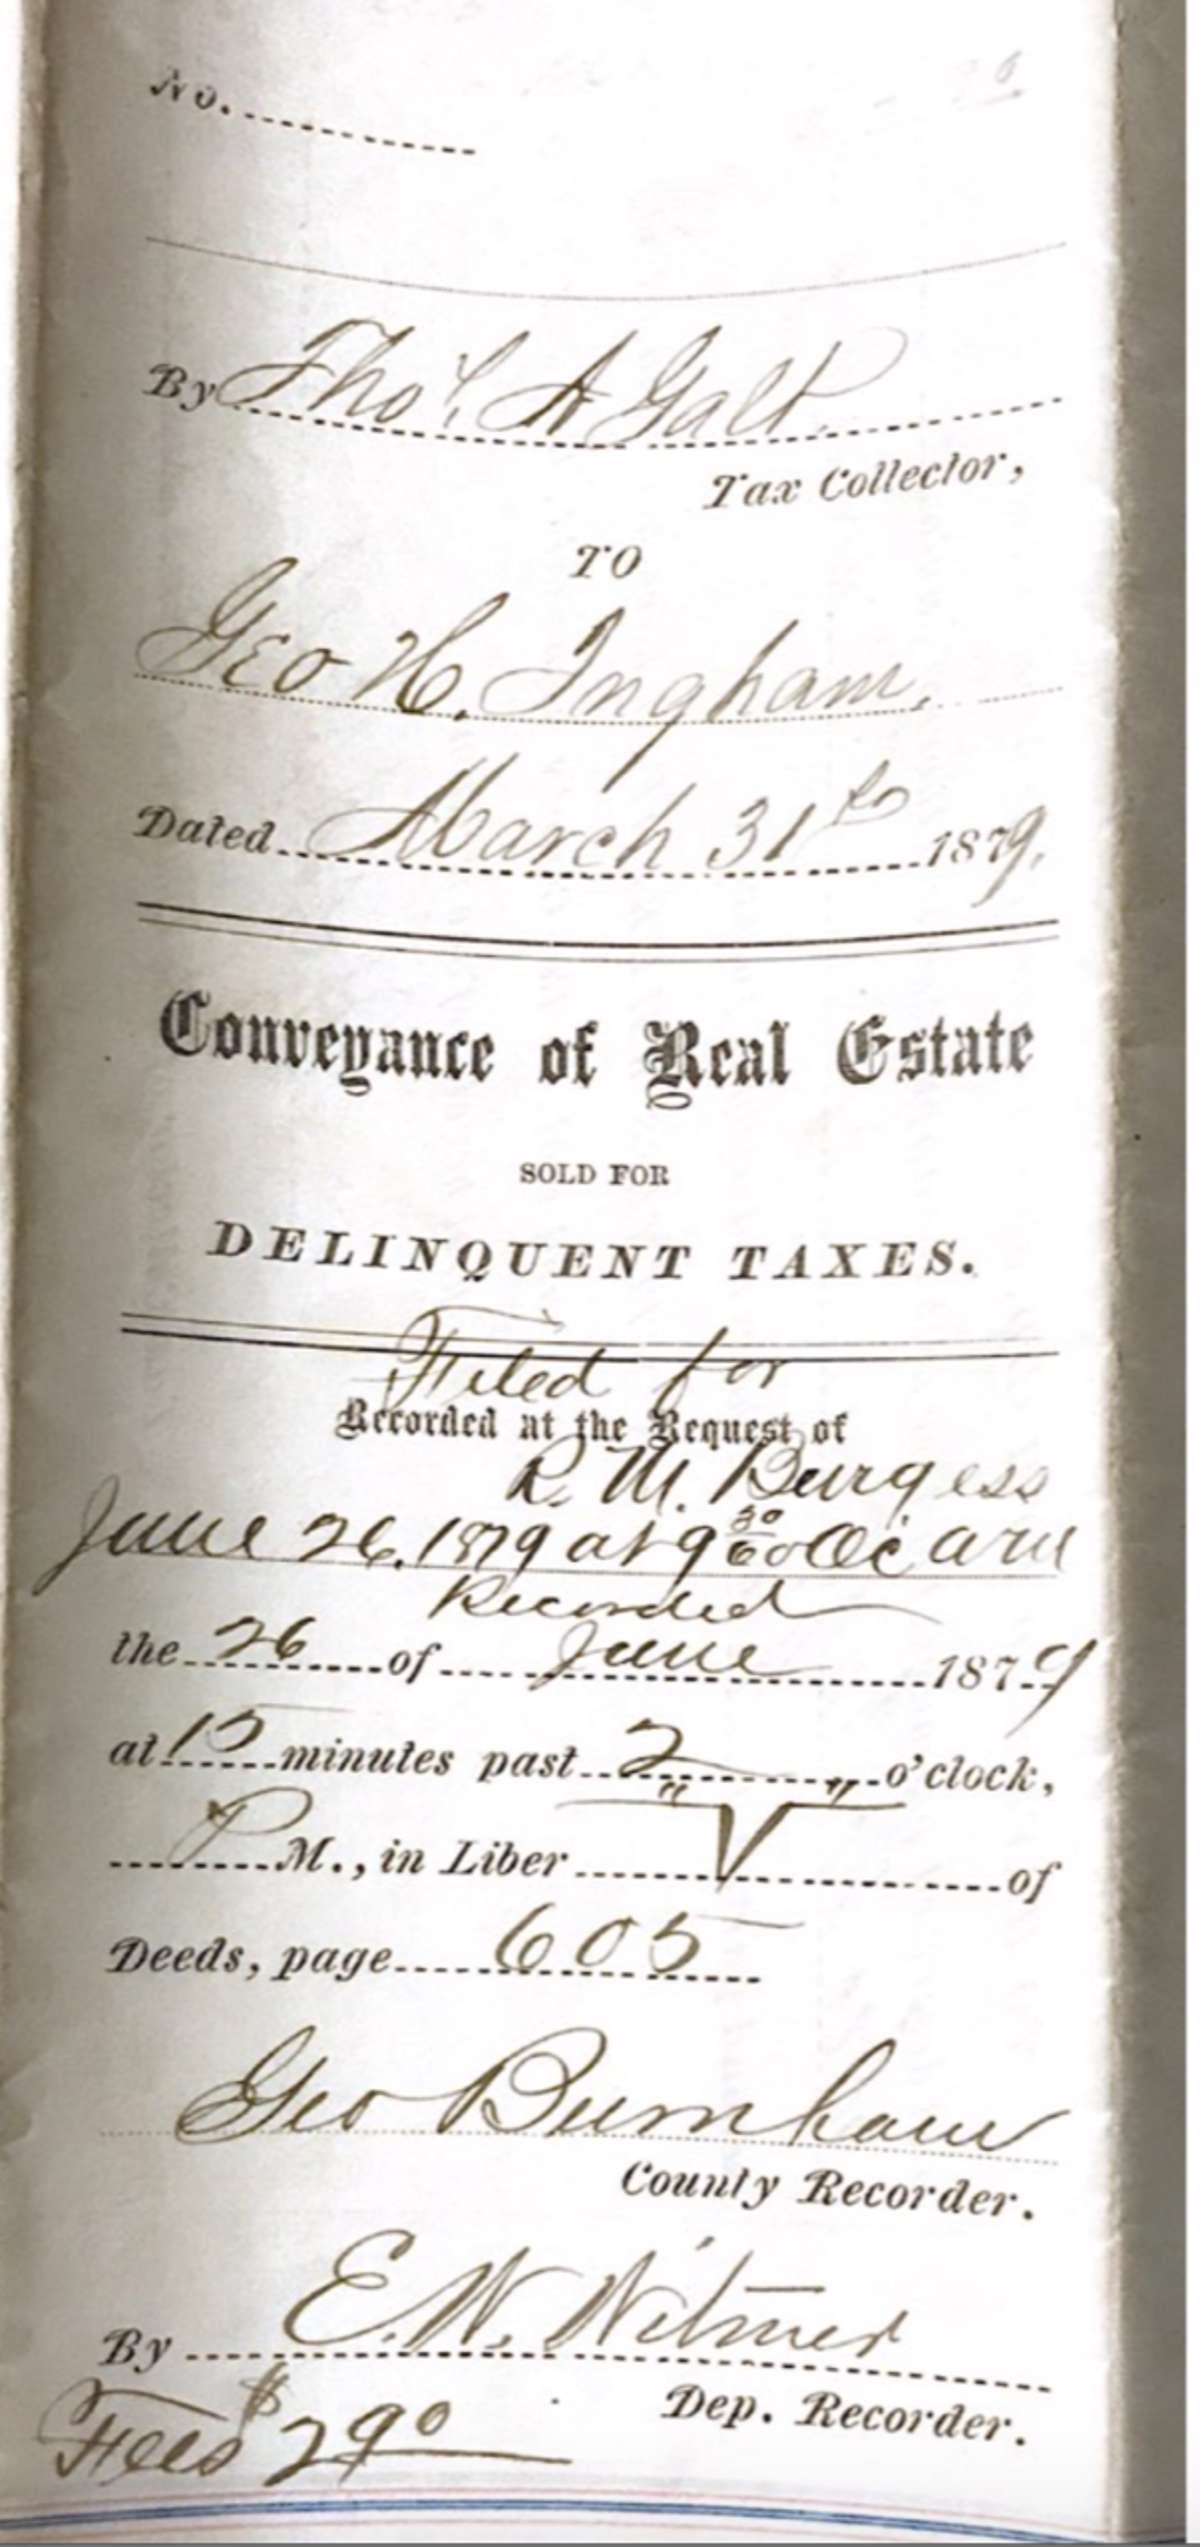 No.
By Thos. A Galt
Tax Collector,
TO
Geo H. Ingham.
Dated March 31st 1879.
Conveyance of Real Estate
SOLD FOR
DELINQUENT TAXES.
Filed for
Recorded at the Request of
R. M. Burgess
June 26. 1879 at 9 30/60 Oc am
Recorded
the 26 of June 1879
at 15 minutes past 2 o'clock,
" "
P M., in Liber V of
Deeds, page 605
Geo Burnham
County Recorder.
By E. W. Witmer
Dep. Recorder.
Fees $2 90